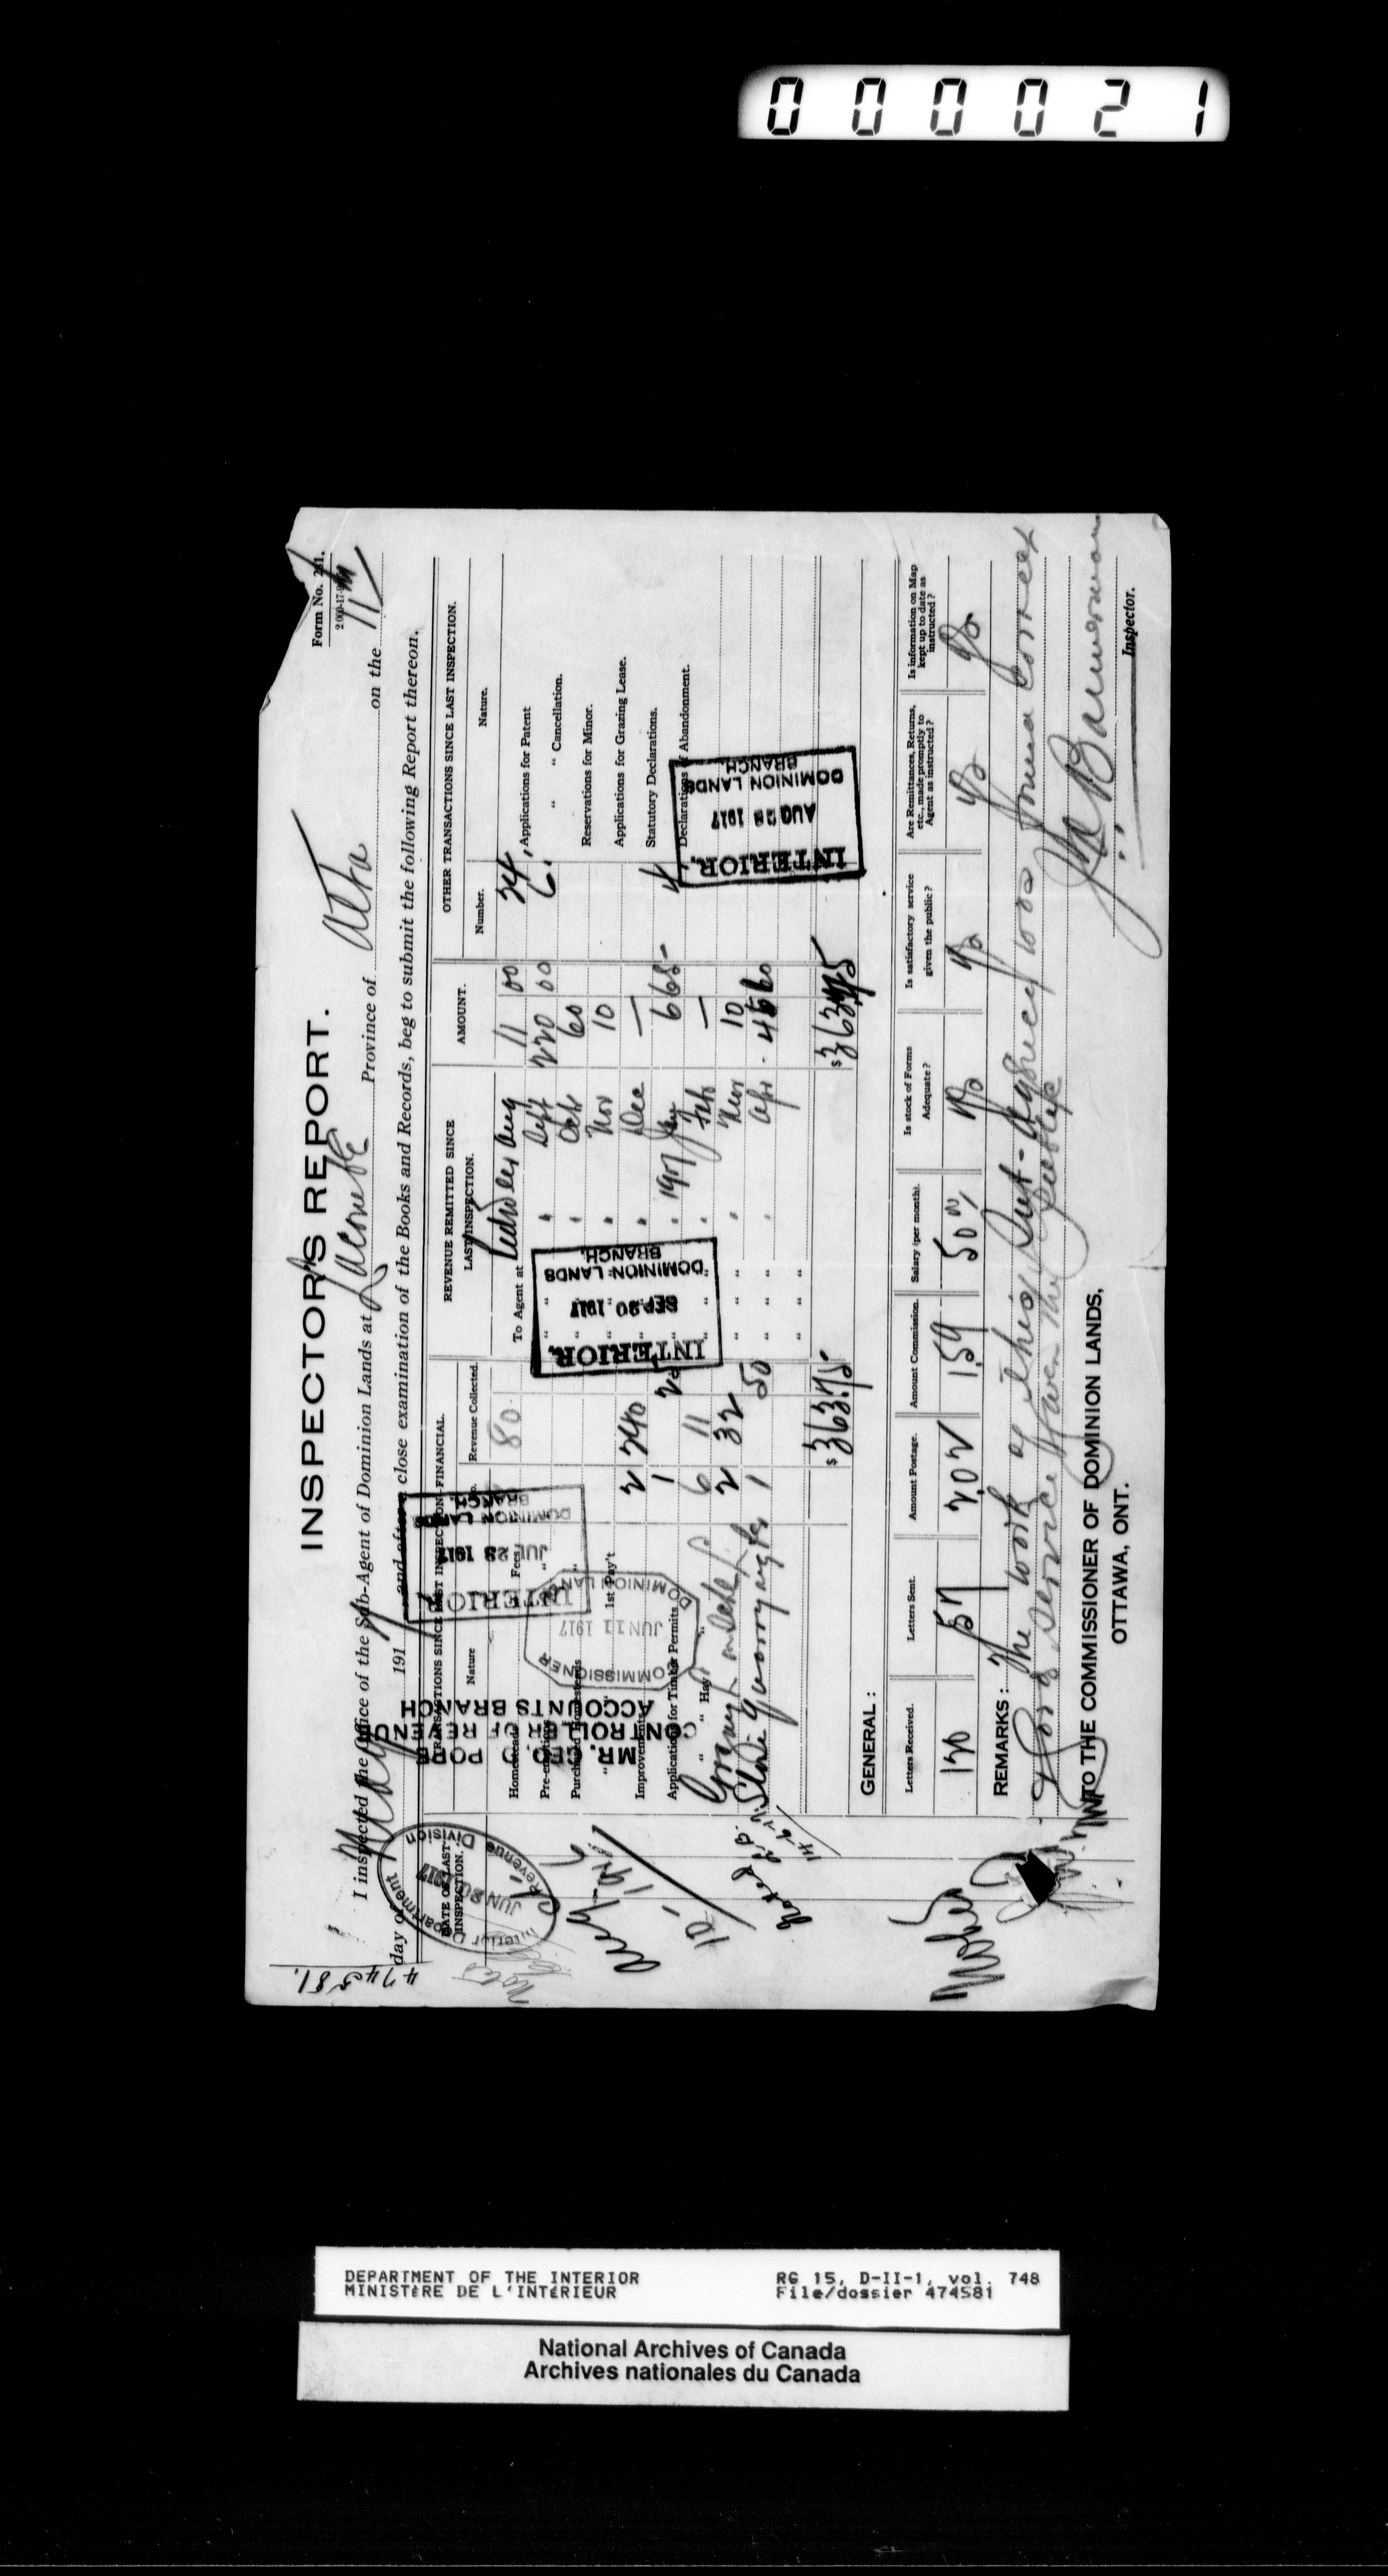 000021
Form No. 241.
INSPECTOR'S REPORT.
I inspected the Office of the Sub-Agent of Dominion Lands at Lacombe Province of Alta on the 11th
day of May 1917 and after a close examination of the Books and Records, beg to submit the following Report thereon.
474581.
DATE OF LAST INSPECTION.
TRANSACTIONS SINCE LAST INSPECTION—FINANCIAL.
REVENUE REMITTED SINCE LAST INSPECTION.
AMOUNT.
OTHER TRANSACTIONS SINCE LAST INSPECTION.
Nature
No.
Revenue Collected.
Number.
Nature.
Homestead Fees 80
Pre-emption "
Purchased Homesteads
" " 1st Pay't
Improvements 2 240
Applications for Timber Permits 1
" " Hay " 6 11
Grazing 2 32
Quarrying 1 50
$ 363.75
To Agent at Red Deer Aug 11 00
" " " Sept 220 00
" " " Oct 60
" " " Nov 10
" " " Dec —
" " " 1917 Jan 6 65
" " " Feb —
" " " Mar 10
" " " Apr 45 60
" "
$ 363.75
24 Applications for Patent
6 " " Cancellation.
Reservations for Minor.
Applications for Grazing Lease.
Statutory Declarations.
4 Declarations of Abandonment.
Aug 1916
10
Noted
14-6-17
GENERAL :
Letters Received.
Letters Sent.
Amount Postage.
Amount Commission.
Salary (per month).
Is stock of Forms Adequate?
Is satisfactory service given the public?
Are Remittances, Returns, etc., made promptly to Agent as instructed?
Is information on Map kept up to date as instructed?
130 57 2.02 1.59 50 Yes Yes Yes Yes
REMARKS : The work of this Sut-Agency was found correct
Good service given the public
Inspector.
TO THE COMMISSIONER OF DOMINION LANDS,
OTTAWA, ONT.
MR. GEO. D. POPE
CONTROLLER OF REVENUE
ACCOUNTS BRANCH
INTERIOR
JUL 28 1917
DOMINION LANDS
BRANCH.
COMMISSIONER
JUN 11 1917
DOMINION LANDS
INTERIOR.
SEP 20 1917
DOMINION LANDS
BRANCH.
INTERIOR.
AUG 28 1917
DOMINION LANDS
BRANCH.
Interior Department
JUN 20 1917
Revenue Division
DEPARTMENT OF THE INTERIOR
MINISTÈRE DE L'INTÉRIEUR
RG 15, D-II-1, vol. 748
File/dossier 474581
National Archives of Canada
Archives nationales du Canada